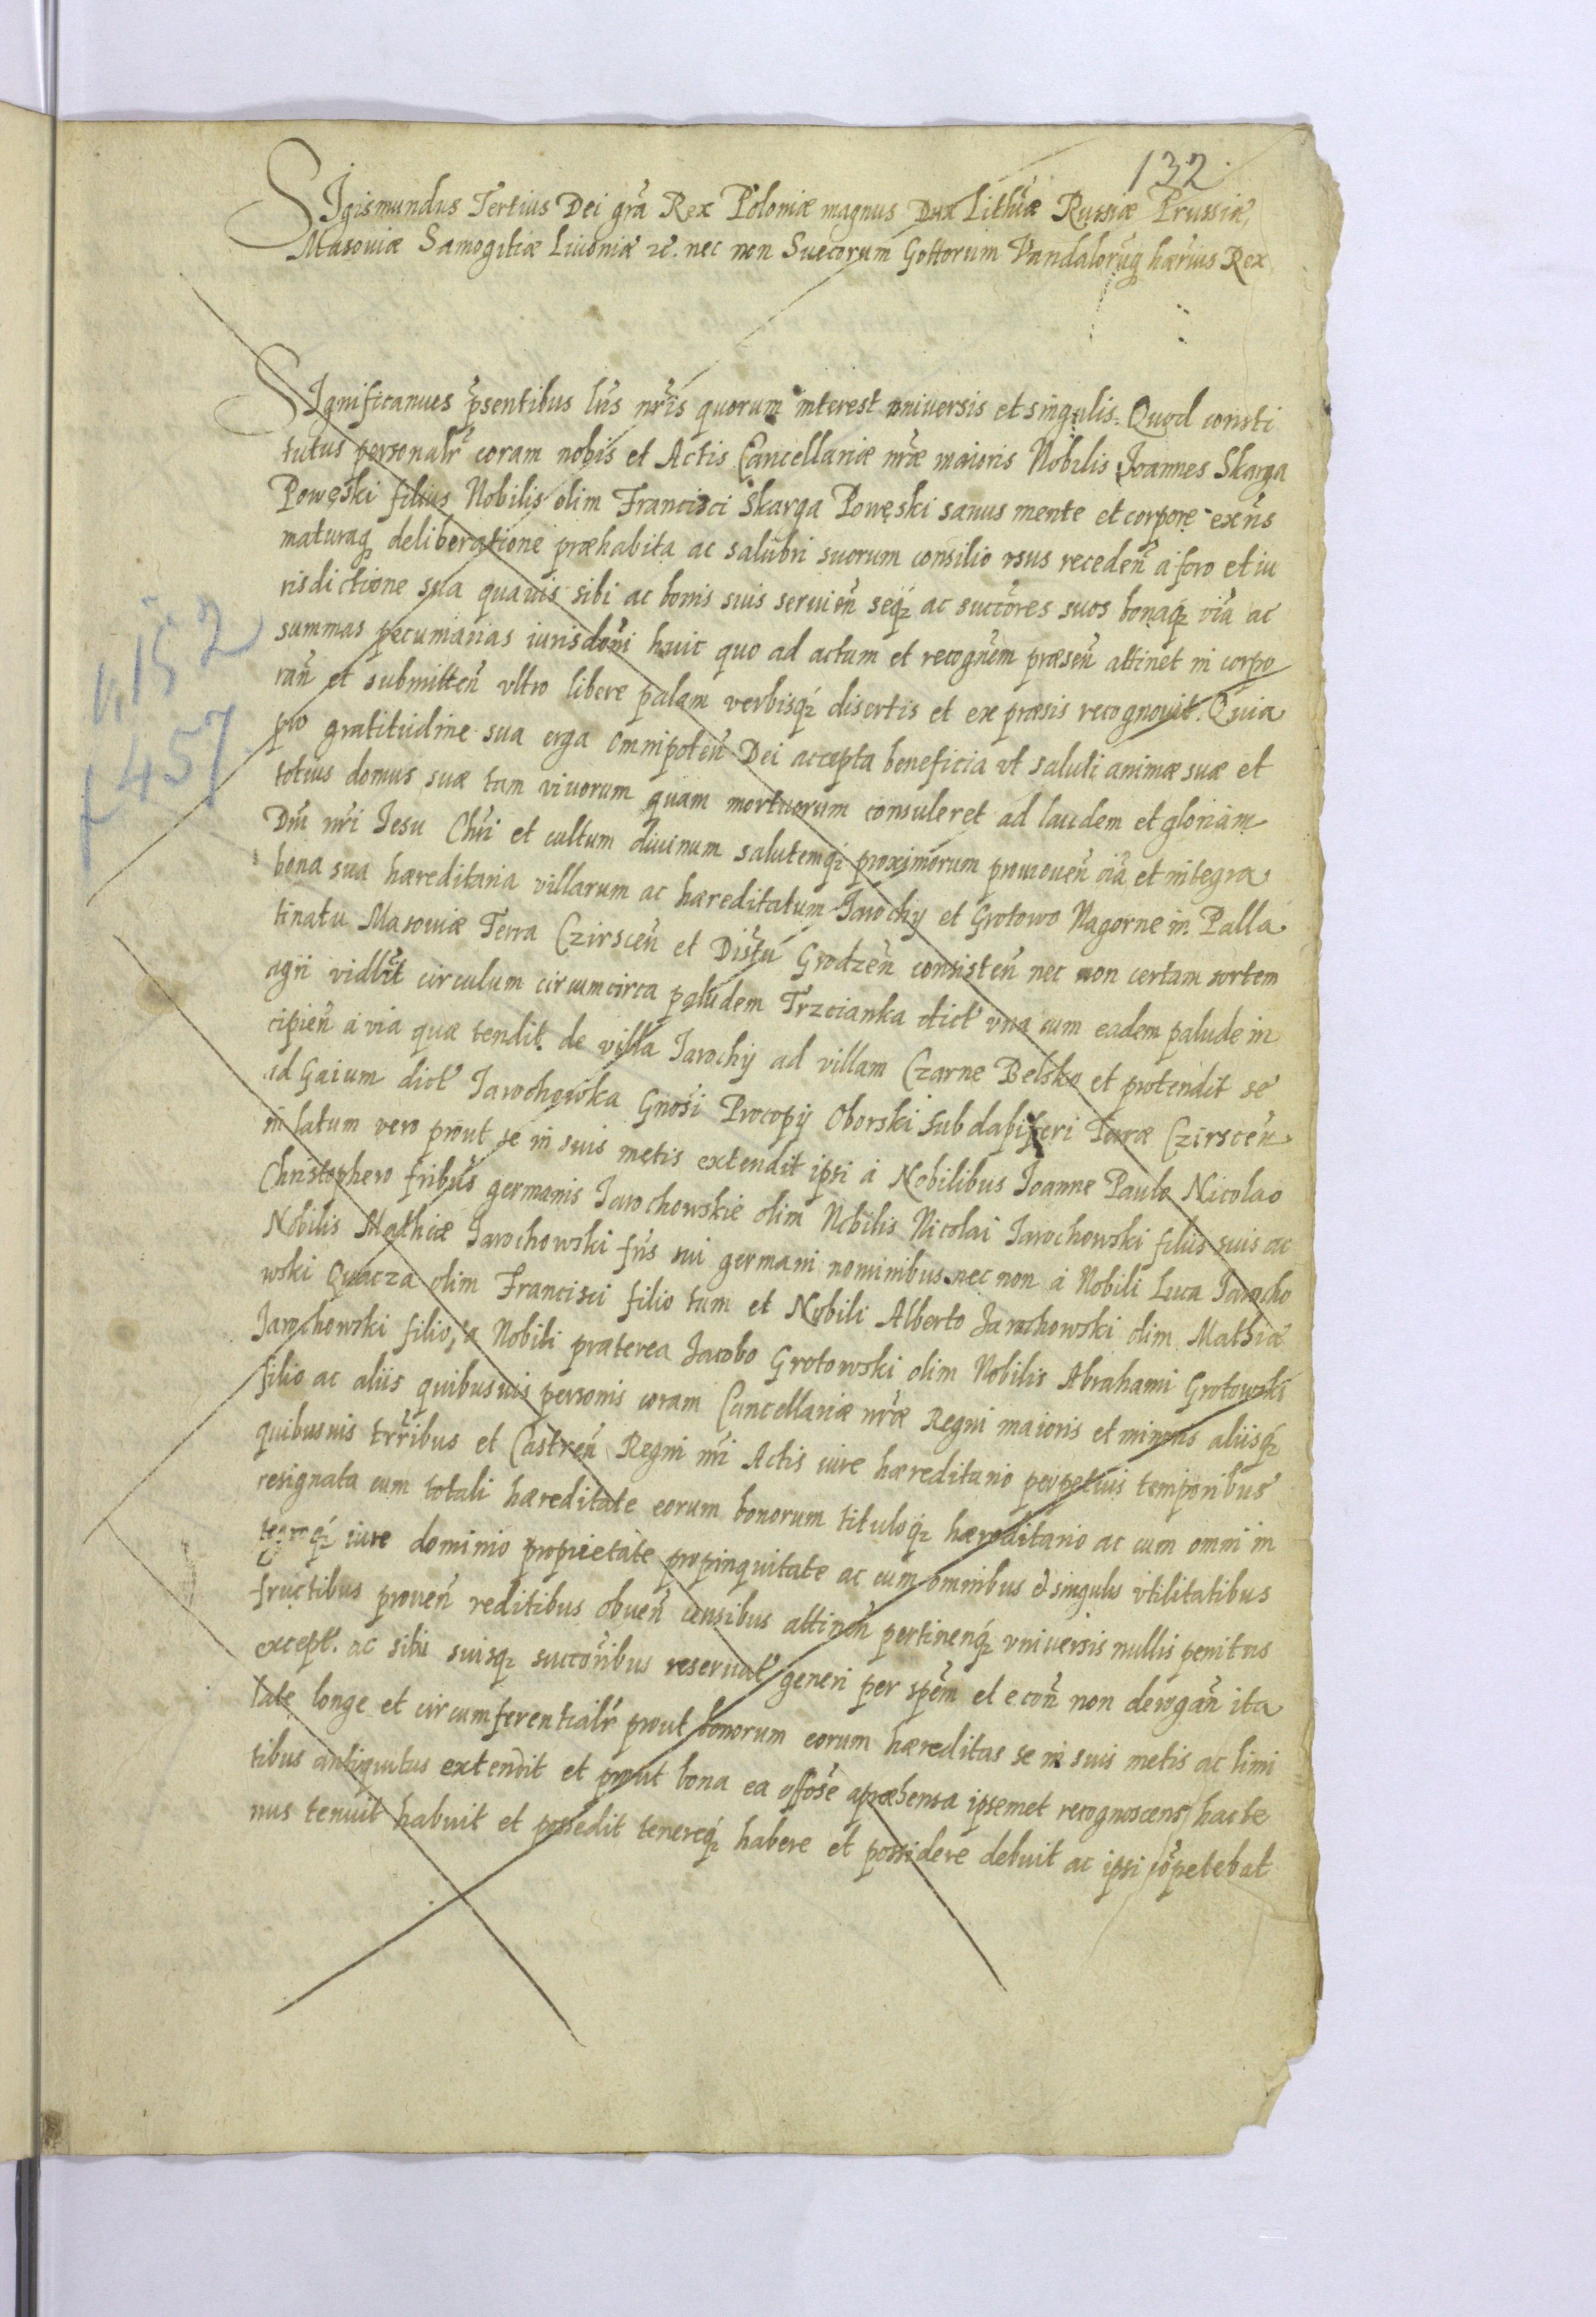 132
SIgismundus Tertius Dei grã Rex Poloniæ magnus Dux Lithũæ Russiæ Prussiæ,
Masoviæ Samogitiæ Livoniæ &c. nec non Suecorum Gottorum Vandalorũq hærius Rex
SIgnificamus p̃sentibus lris nr̃is quorum interest universis et singulis. Quod consti
tutus personalr̃ coram nobis et Actis Cancellariæ nr̃æ maioris Nobilis Joannes Skarga
Powęski filius Nobilis olim Francisci Skarga Powęski sanus mente et corpore exñs
maturaq deliberatione præhabita ac salubri suorum consilio usus recedeñ a foro et iu
risdictione sua quavis sibi ac bonis suis servieñ seqz ac succõres suos bonaqz oĩa ac
summas pecuniarias iurisdoñi huic quo ad actum et recognẽm præseñ attinet in corpo
rañ et submitteñ ultro libere palam verbisqz disertis et expræsis recognovit. Quia
pro gratitudine sua erga Omnipoteñ Dei accepta beneficia ut saluti animæ suæ et
totius domus suæ tam vivorum quam mortuorum consuleret ad laudem et gloriam
Dñi nr̃i Jesu Chr̃i et cultum divinum salutemqz proximorum promoveñ oĩa et integra
bona sua hæreditaria villarum ac hæreditatum Jarochy et Grotowo Nagorne in Palla
tinatu Masoviæ Terra Czirsceñ et Distr̃u Grodzeñ consisteñ nec non certam sortem
agri vidl̃t circulum circumcirca paludem Trzcianka dict' una cum eadem palude in
cipieñ a via quæ tendit de villa Jarochy ad villam Czarne Belsko et protendit se
ad Gaium dict' Jarochowka Gnosi Procopy Oborski Subdapiferi Terræ Czirsceñ
in latum vero prout se in suis metis extendit ipsi a Nobilibus Joanne Paulo Nicolao
Christophero fribus germanis Jarochowskie olim Nobilis Nicolai Jarochowski filiis suis ac
Nobilis Mathiæ Jarochowski fris sui germani nominibus nec non a Nobili Luca Jarocho
wski Quacza olim Francisci filio tum et Nobili Alberto Jarochowski olim Mathiæ
Jarochowski filio, a Nobili præterea Jacobo Grotowski olim Nobilis Abrahami Grotowski
filio ac aliis quibusvis personis coram Cancellariæ nr̃æ Regni maioris et minoris aliisqz
quibusvis tr̃ribus et Castreñ Regni nr̃i Actis iure hæreditario perpetuis temporibus
resignata cum totali hæreditate eorum bonorum tituloqz hæreditario ac cum omni in
tegroqz iure dominio proprietate propinquitate ac cum omnibus & singulis utilitatibus
fructibus proveñ reditibus obveñ censibus attineñ pertinenqz universis nullis penitus
except. ac sibi suisqz succoribus reservat' generi per spẽm et e coñ non derogañ ita
late longe et circumferentialr̃ prout bonorum eorum hæreditas se in suis metis ac limi
tibus antiquitus extendit et prout bona ea offose apræhensa ipsemet recognoscens hacte
nus tenuit habuit et possedit tenereqz habere et possidere debuit ac ipsi cõpetebat